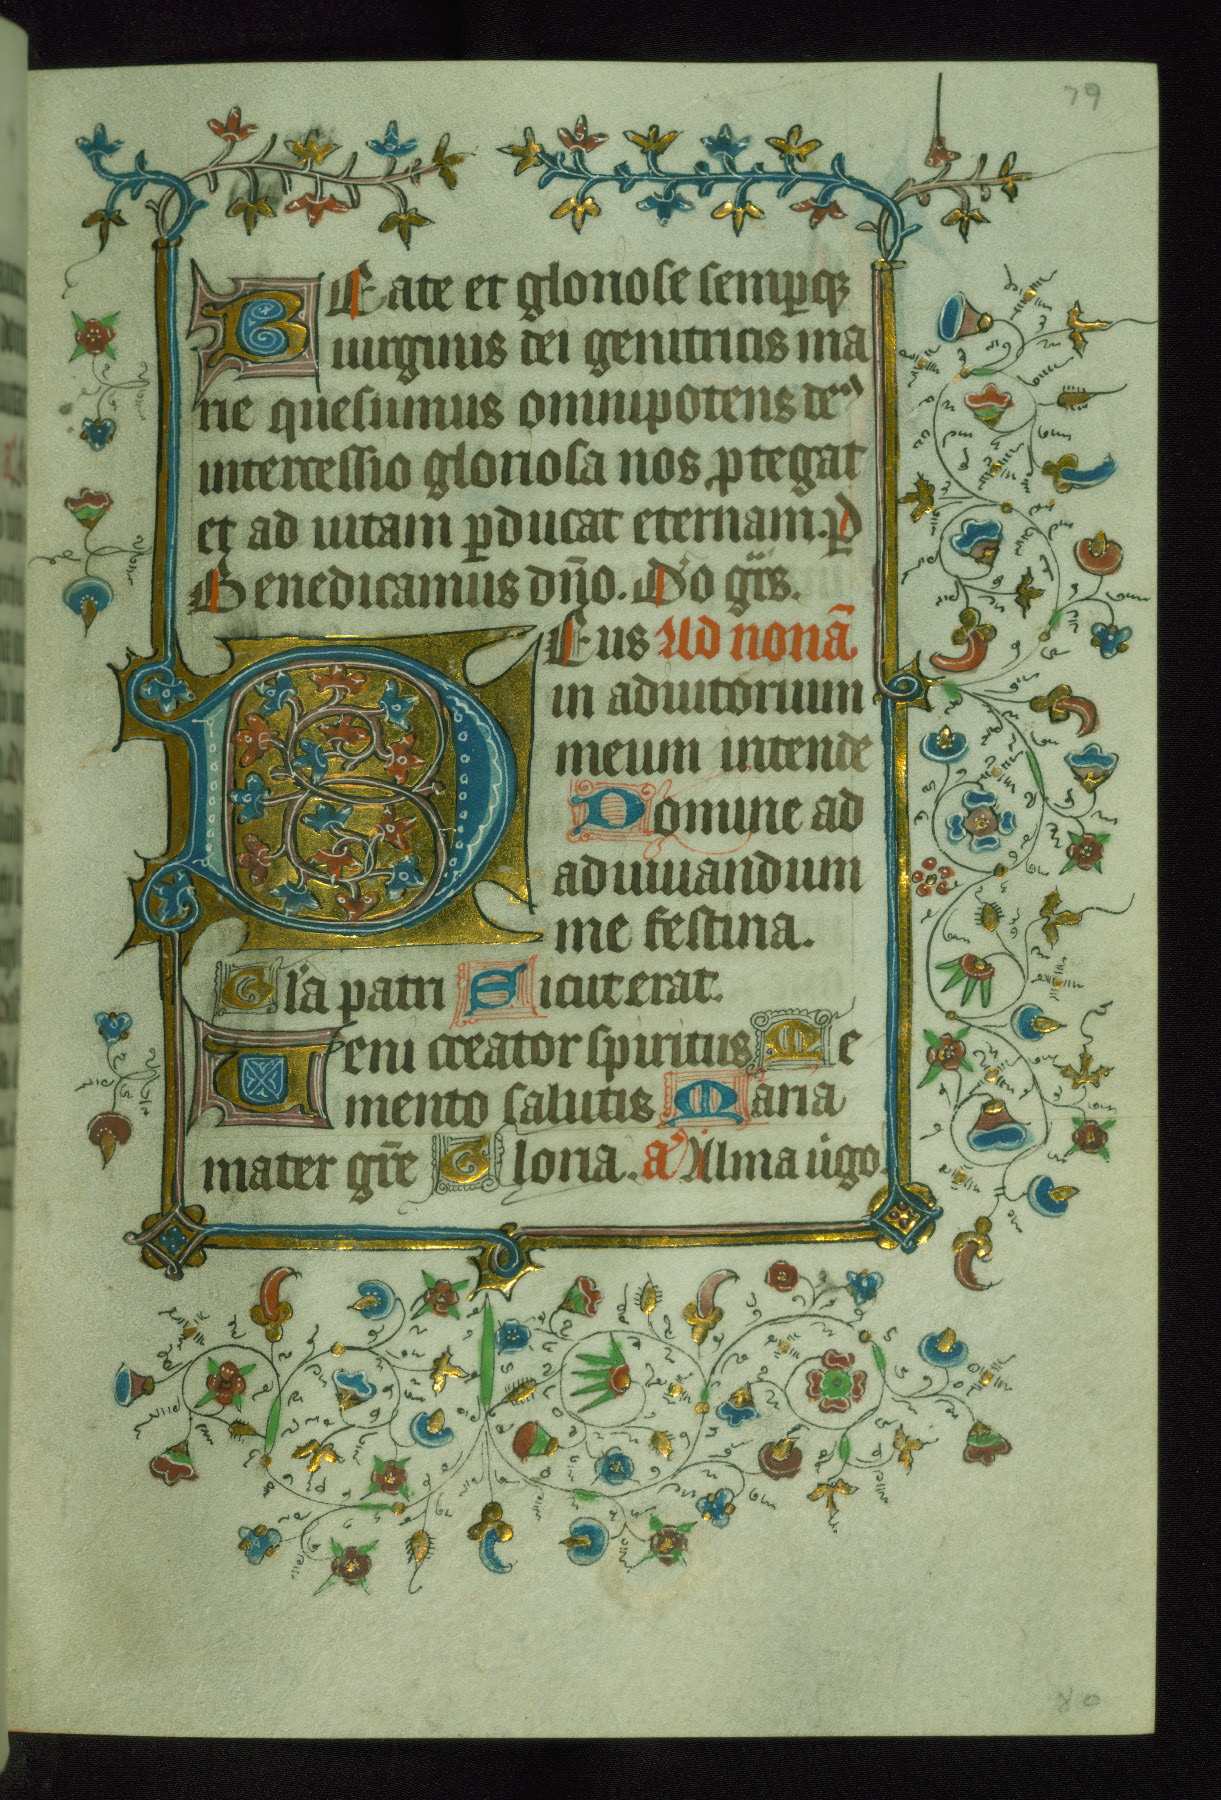 79
BEate et gloriose semperqꝫ
uirginis dei genitricis ma
rie quesumus omnipotens deꝰ
intercessio gloriosa nos ꝓtegat
et ad uitam ꝑducat eternam. ꝑ
Benedicamus dn̄o. Do gr̄s.
DEus Ad nonā
in adiutorium
meum intende
Domine ad
adiuuandum
me festina.
Gl'a patri Sicut erat.
Ueni creator spiritus Me
mento salutis Maria
mater gr̄e Gloria. a' Alma uigo.
80